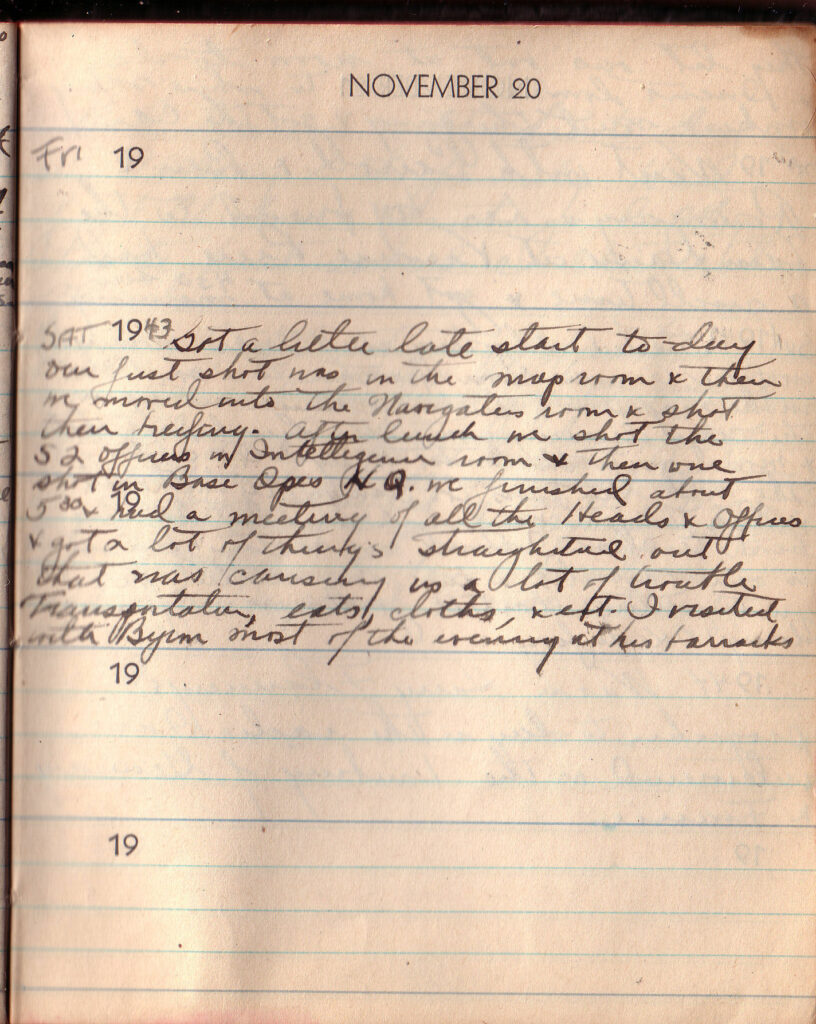 NOVEMBER 20
Fri 19
SAT 1943 Got a little late start to-day
our first shot was in the map room & then
we moved into the Navigators room & shot
then briefing. After lunch we shot the
S2 offices in Intelligence room & then one
shot in Base Opes H Q. we finished about
19
5 00 & had a meeting of all the Heads & Offices
& got a lot of things straightend out
that was causing us a lot of trouble
Transportation, eats, cloths, & ect. I visited
with Byron most of the evening at his barracks
19
19